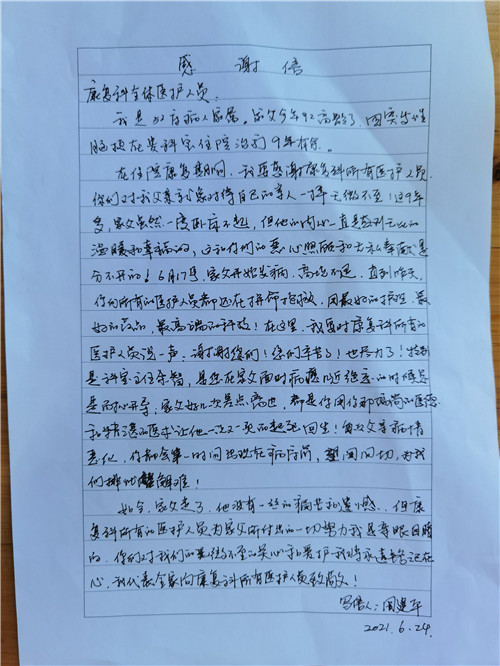 感 谢 信
康复科全体医护人员：
我是32床病人家属。家父今年92高龄了，因突发性
脑梗在贵科室住院治疗9年有余。
在住院康复期间，我要感谢康复科所有医护人员，
你们对我父亲就象对待自己的亲人一样无微不至！这9年
多，家父虽然一度卧床不起，但他的内心一直是感到无比的
温暖和幸福的，这和你们的悉心照顾和无私奉献是
分不开的！6月17号，家父开始发病，高烧不退，直到昨天，
你们所有的医护人员都还在拼命抢救，用最好的医生、最
好的药品，最高端的科技！在这里，我要对康复科所有的
医护人员说一声：谢谢您们！您们辛苦了！也尽力了！特别
是科室主任乐智，是您在家父面对病魔
是耐心开导，家父好几次差点离世，都是你用你那高尚的医德
和精湛的医术让他一次又一次的起死回生！每次父亲病情
恶化，你都会第一时间出现在病房前，望闻问切，为我
们排忧解难！
如今，家父走了，他没有一丝的病苦和遗憾。但康
复科所有的医护人员为家父所付出的一切努力我是尊眼目睹
的，你们对我们的无微不至的关心和爱护我将永远铭记在
心，我代表全家向康复科所有医护人员致敬！
写信人：周建军
2021.6.24.